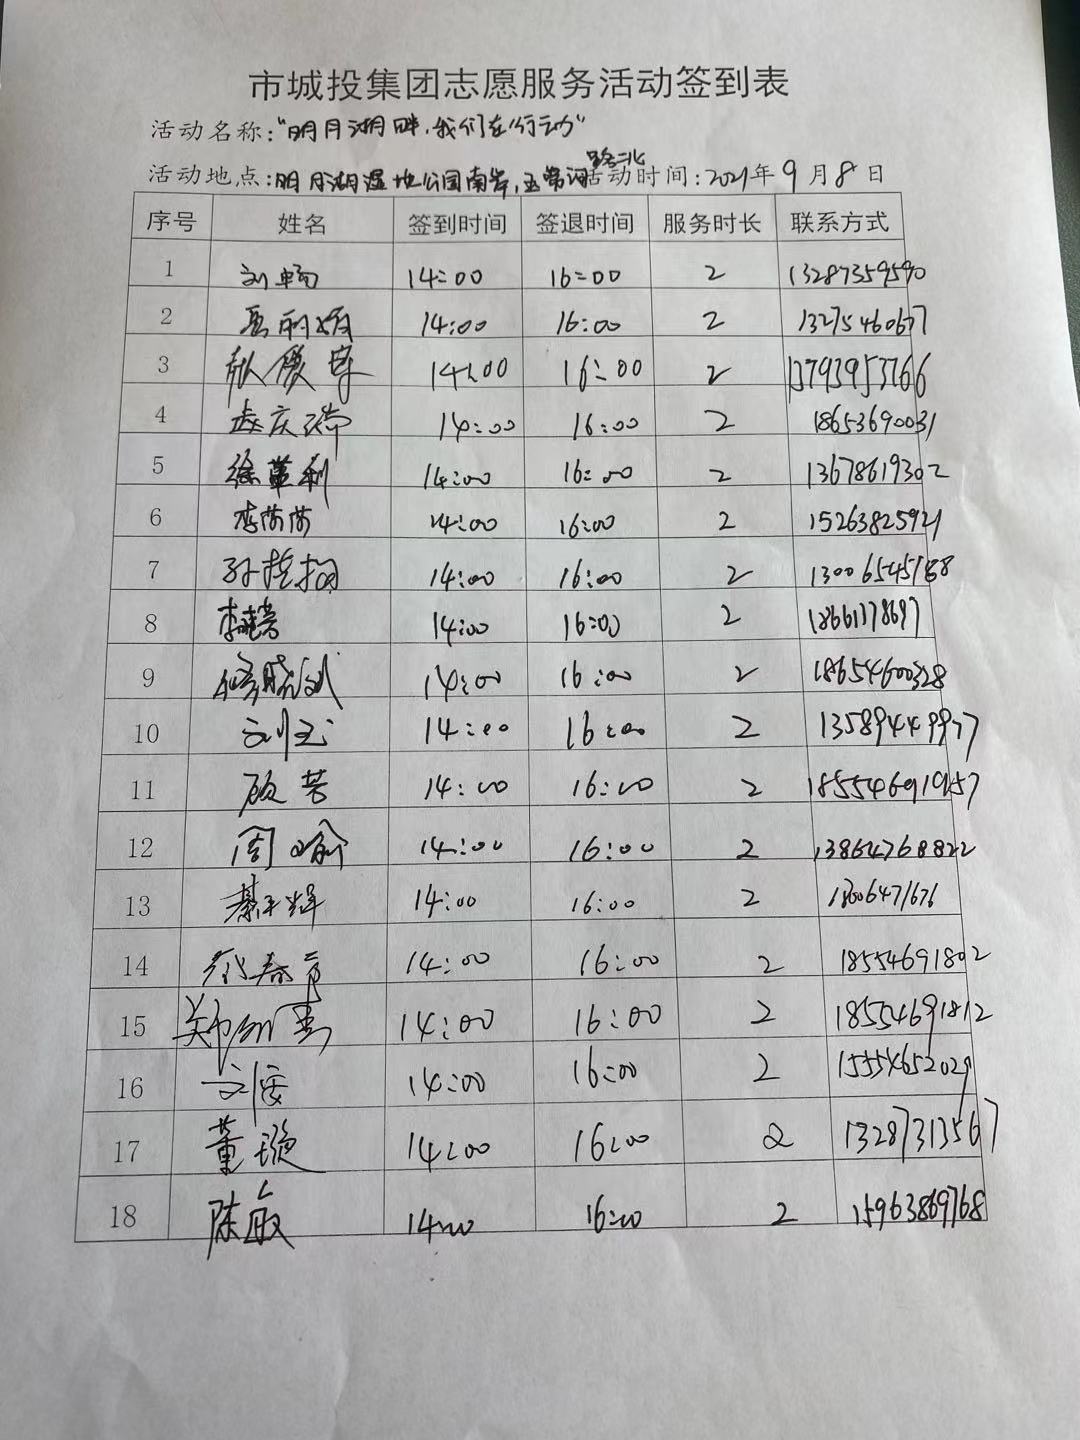 市城投集团志愿服务活动签到表
活动名称:"明月湖畔,我们在行动"
活动地点:明月湖湿地公园南岸, 路北 活动时间:2021年9月8日
序号 姓名 签到时间 签退时间 服务时长 联系方式
1 刘畅 14:00 16:00 2 13287359590
2 14:00 16:00 2 13275460677
3 14:00 16:00 2 13793953766
4 孟庆瑞 14:00 16:00 2 18653690031
5 徐董利 14:00 16:00 2 13678619302
6 李茜茜 14:00 16:00 2 15263825921
7 14:00 16:00 2 13006545188
8 14:00 16:00 2 18661378697
9 修晓斌 14:00 16:00 2 18654600328
10 刘玉 14:00 16:00 2 13589449977
11 顾芳 14:00 16:00 2
12 周瑜 14:00 16:00 2 13864768822
13 綦玉辉 14:00 16:00 2 18006471676
14 14:00 16:00 2 18554691802
15 14:00 16:00 2 18554691812
16 刘俊 14:00 16:00 2 15554652029
17 董璇 14:00 16:00 2 13287313567
18 陈敏 14:00 16:00 2 15963869768